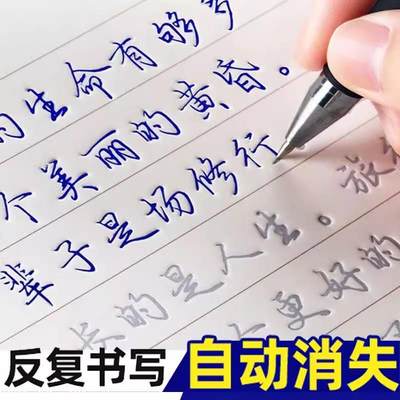 的生命有够多
个美丽的黄昏。
辈子是场修行
长的是人生。旅
更好的
反复书写 自动消失